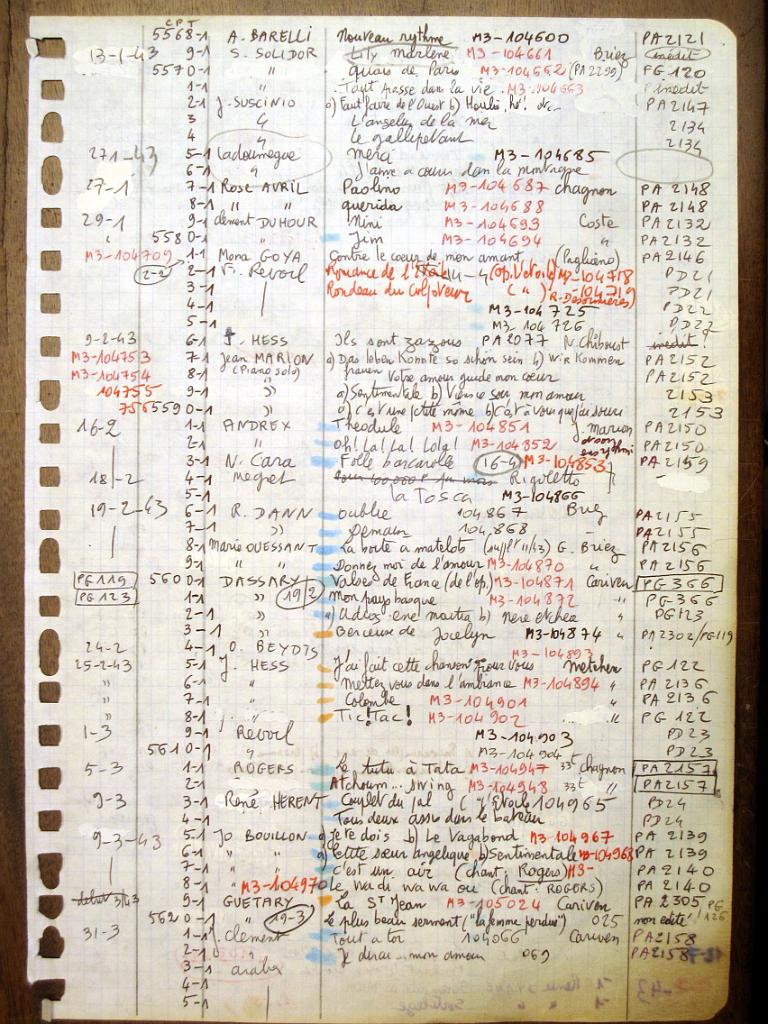 CPT
5568-1 A. BARELLI Nouveau rythme M3-104600 PA2121
13-1-43 9-1 S. SOLIDOR Lily Marlène M3-104661 Briez inédit
5570-1 " Quais de Paris M3-104662 (PA2299) PG 120
1-1 " Tout passe dans la vie M3-104663 inédit
2-1 J. SUSCINIO a) Faut faire de l'Ouest b) PA2147
3 " L'angelus de la mer 2134
4 " Le 2134
27-1-43 5-1 Ladoumegue merci M3-104685
6-1 " J'aime a coeur dans la montagne
27-1 7-1 Rose AVRIL Paolino M3-104687 chagnon PA 2148
8-1 " " querida M3-104688 PA 2148
29-1 9-1 clement DUHOUR Mini M3-104693 Coste PA2132
" 5580-1 " Jim M3-104694 " PA2132
M3-104709 1-1 Mona GOYA Contre le coeur de mon amant, (Pagliano) PA2146
2-2 2-1 F. Revoil Romance de l' (op. l'étoile) M3-104718 PD21
3-1 Rondeau du Colporteur ( " ) M3-104719 R. Desormières) PD21
4-1 M3-104725 PD22
5-1 M3 104726 PD22
9-2-43 6-1 J. HESS Ils sont zazous PA2077 N. Chiboust inédit
M3-104753 7-1 Jean MARION a) Das leben Könnte so schön sein b) Wir Kommen PA2152
M3-104754 8-1 (Piano solo) Votre amour guide mon coeur PA2152
104755 9-1 " a) Sentimentale b) Viens ce soir mon amour 2153
756 5590-1 " a) c'est une petite môme b) C'est à vous que 2153
16-2 1-1 ANDREX Theodule M3-104851 J. marion PA2150
2-1 " Oh! La! La! Lola! M3-104852 PA2150
3-1 N. Cara Folle barcarolle 16-4 M3-104853 PA2159
18-2 4-1 megret Rigoletto
5-1 la Tosca M3-104866
19-2-43 6-1 R. DANN oublie 104867 Briez PA2155
7-1 " Demain 104868 PA2155
8-1 Marie OUESSANT La boîte a matelots G. Briez PA2156
9-1 " Donnez moi de l'amour M3-104870 " PA2156
PG119 5600-1 DASSARY Valse de France (de l'op) M3-104871 Cariven PG366
PG123 1-1 " 19/2 Mon pays basque M3-104872 " PG366
2-1 " a) Adios ene maitia b) nere etchea " PG123
3-1 " Berceuse de Jocelyn M3-104874 " PA2302/PG119
24-2 4-1 O. BEYDTS M3-104893
25-2-43 5-1 J. HESS J'ai fait cette chanson pour vous Metehen PG 122
" 6-1 " Mettez vous dans l'ambiance M3-104894 " PA 2136
" 7-1 " Colombe M3-104901 " PA 2136
" 8-1 " Tic! Tac! M3-104902 " PG 122
1-3 9-1 Revoil M3-104903 PD23
5610-1 " M3-104904 PD23
5-3 1-1 ROGERS Le tutu à Tata M3-104947 33t chagnon PA2157
2-1 Atchoum... swing M3-104948 33t " PA2157
9-3 3-1 René HERENT Couplet du ( " l'étoile 104965 PD24
4-1 Tous deux assis dans le bateau PD24
9-3-43 5-1 JO BOUILLON a) Je te dois b) Le Vagabond M3-104967 PA 2139
6-1 " " a) Petite soeur angelique b) Sentimentale M3-104968 PA 2139
7-1 " " c'est un air (chant, Rogers) M3- PA 2140
8-1 " M3-104970 le wa di wa wa ou (chant: ROGERS) PA 2140
début 3/43 9-1 GUETARY La St Jean M3-105024 Cariven PA 2305 PG 126
5620-1 " 19-3 le plus beau serment ("la femme perdue") 025 non édité
31-3 1-1 J. clement Tout a toi 104066 Cariven PA2158
2-1 " Je dirai... mon amour 069 PA2158
3-1 araber
4-1
5-1